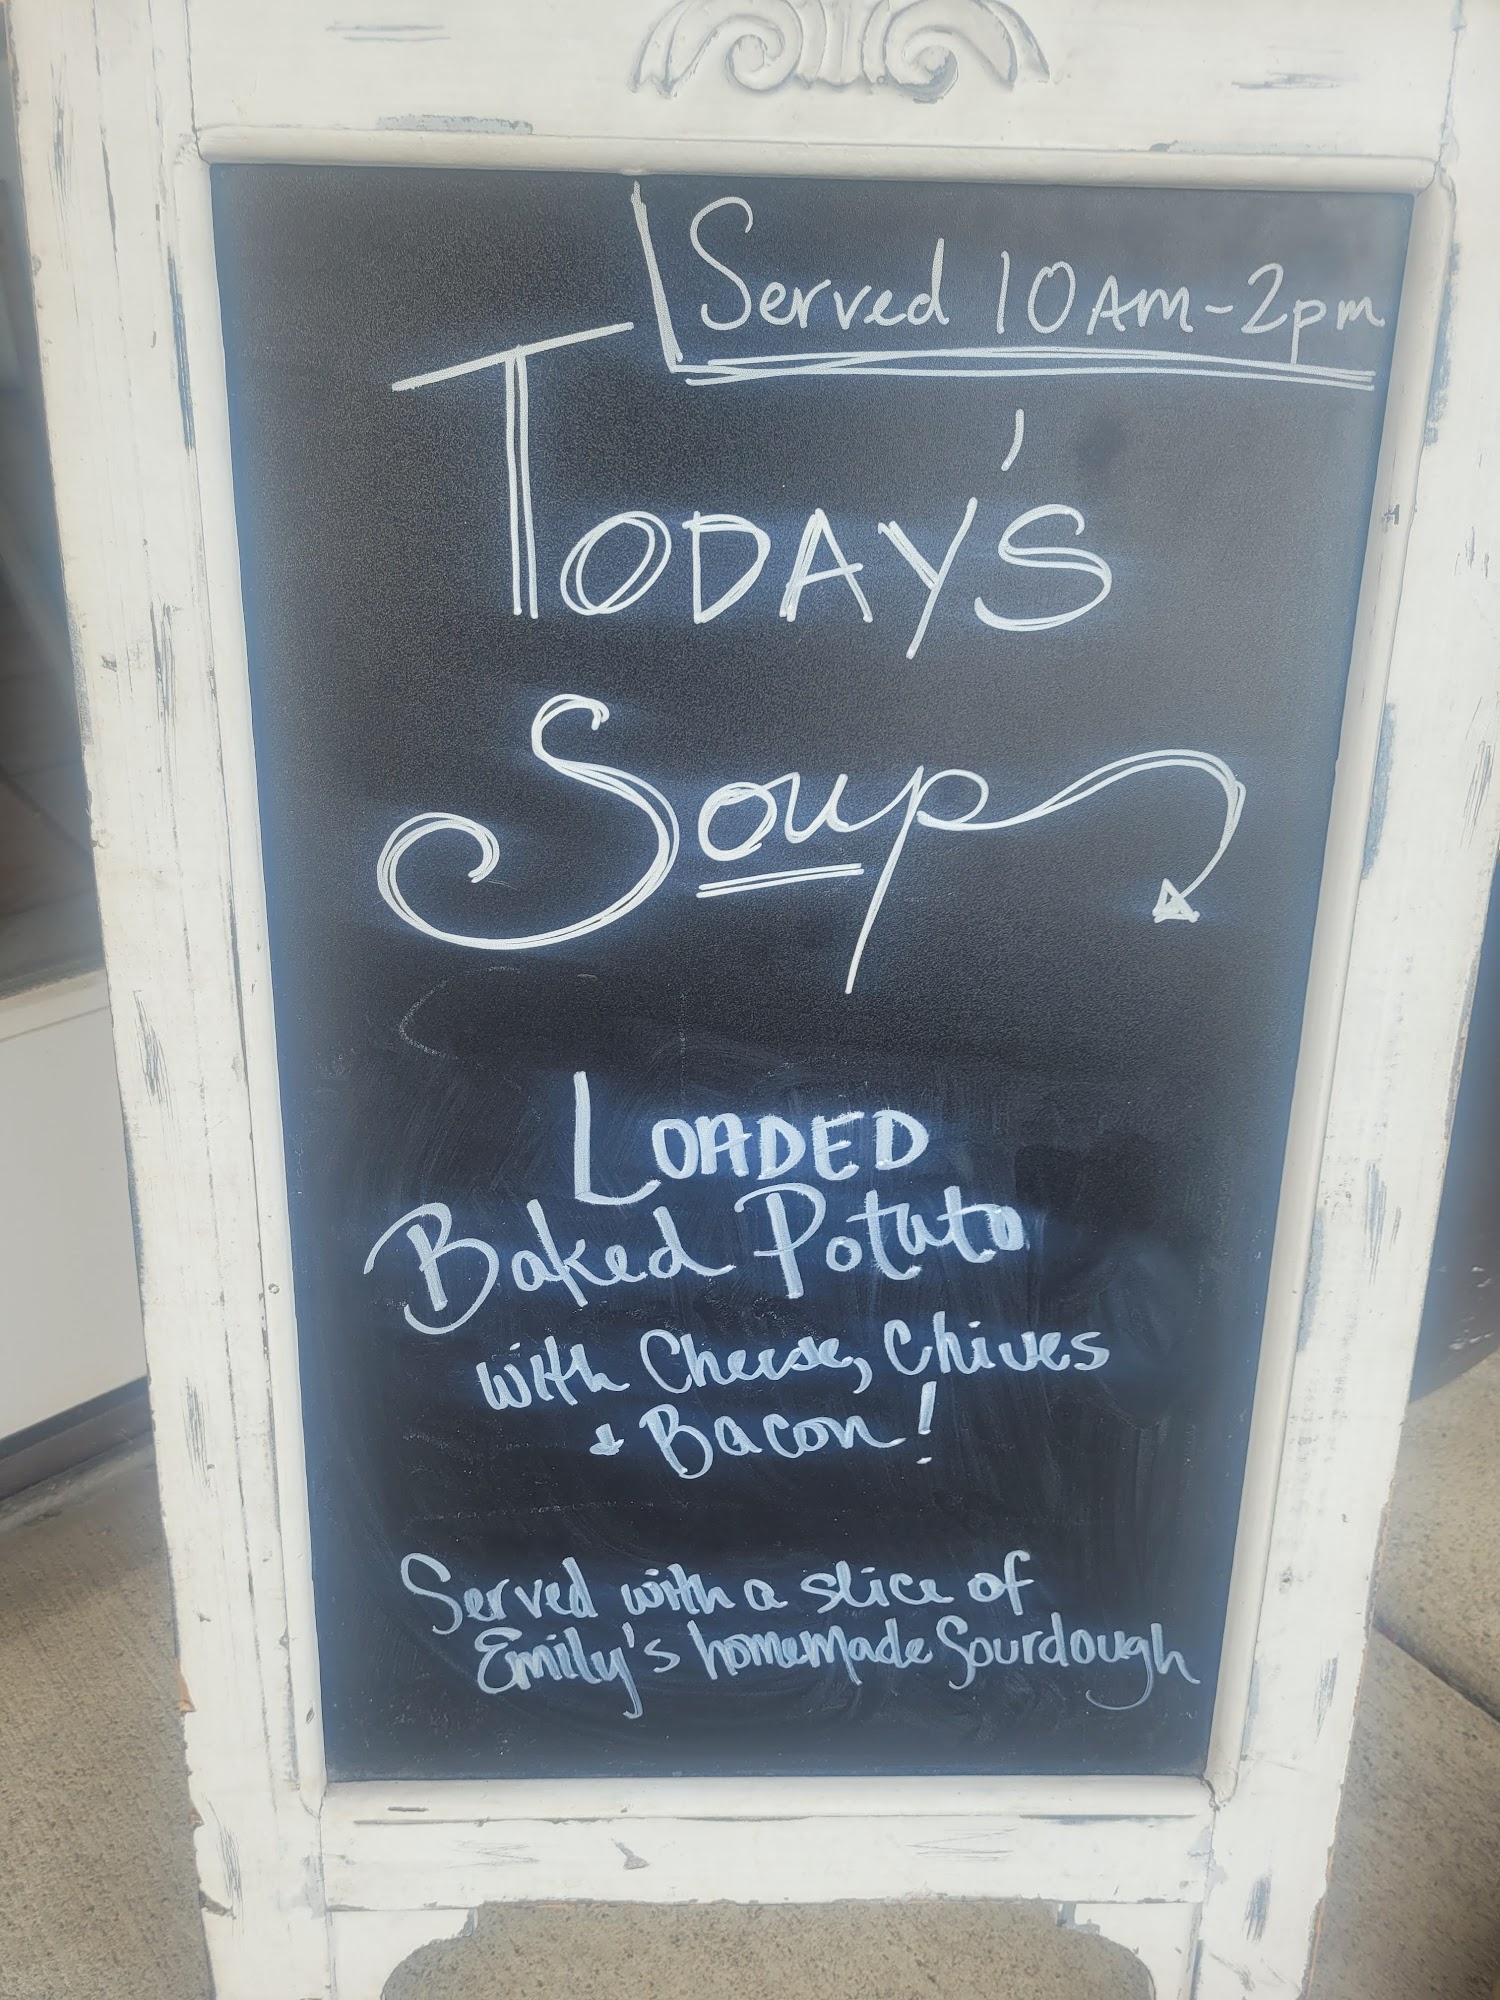 Served 10AM-2pm
TODAY'S
Soup
LOADED
Baked Potato
with Cheese, Chives
+ Bacon!
Served with a slice of
Emily's homemade Sourdough